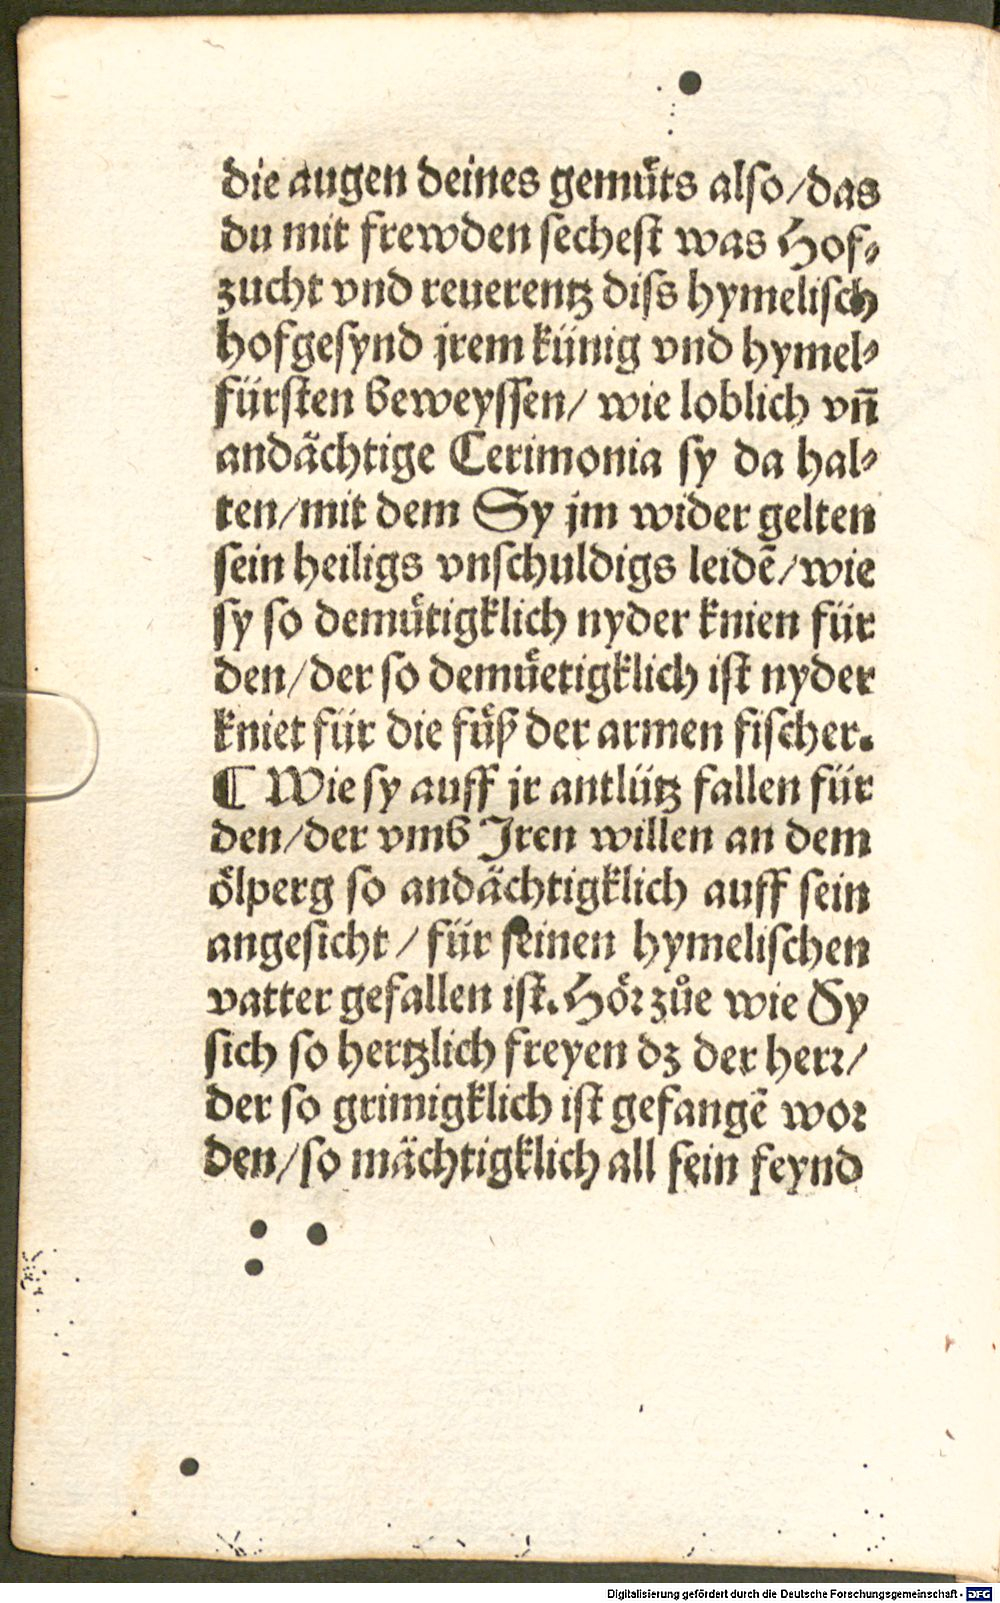 die augen deines gemuͤts also/das
du mit frewden sechest was Hof⸗
zucht vnd reuerentz diss hymelisch
hofgesynd jrem künig vnd hymel⸗
fürsten beweyssen/ wie loblich vn̄
andaͤchtige Cerimonia sy da hal⸗
ten/mit dem Sy jm wider gelten
sein heiligs vnschuldigs leidē/wie
sy so demuͤtigklich nyder knien für
den/der so demuͤetigklich ist nyder
kniet für die fuͤß der armen fischer.
¶ Wie sy auff jr antlütz fallen für
den/der vmb Jren willen an dem
oͤlperg so andaͤchtigklich auff sein
angesicht / für seinen hymelischen
vatter gefallen ist. Hoͤꝛ zůe wie Sy
sich so hertzlich freyen dz der herꝛ/
der so grimigklich ist gefangē woꝛ
den/so maͤchtigklich all sein feynd
Digitalisierung gefördert durch die Deutsche Forschungsgemeinschaft - DFG